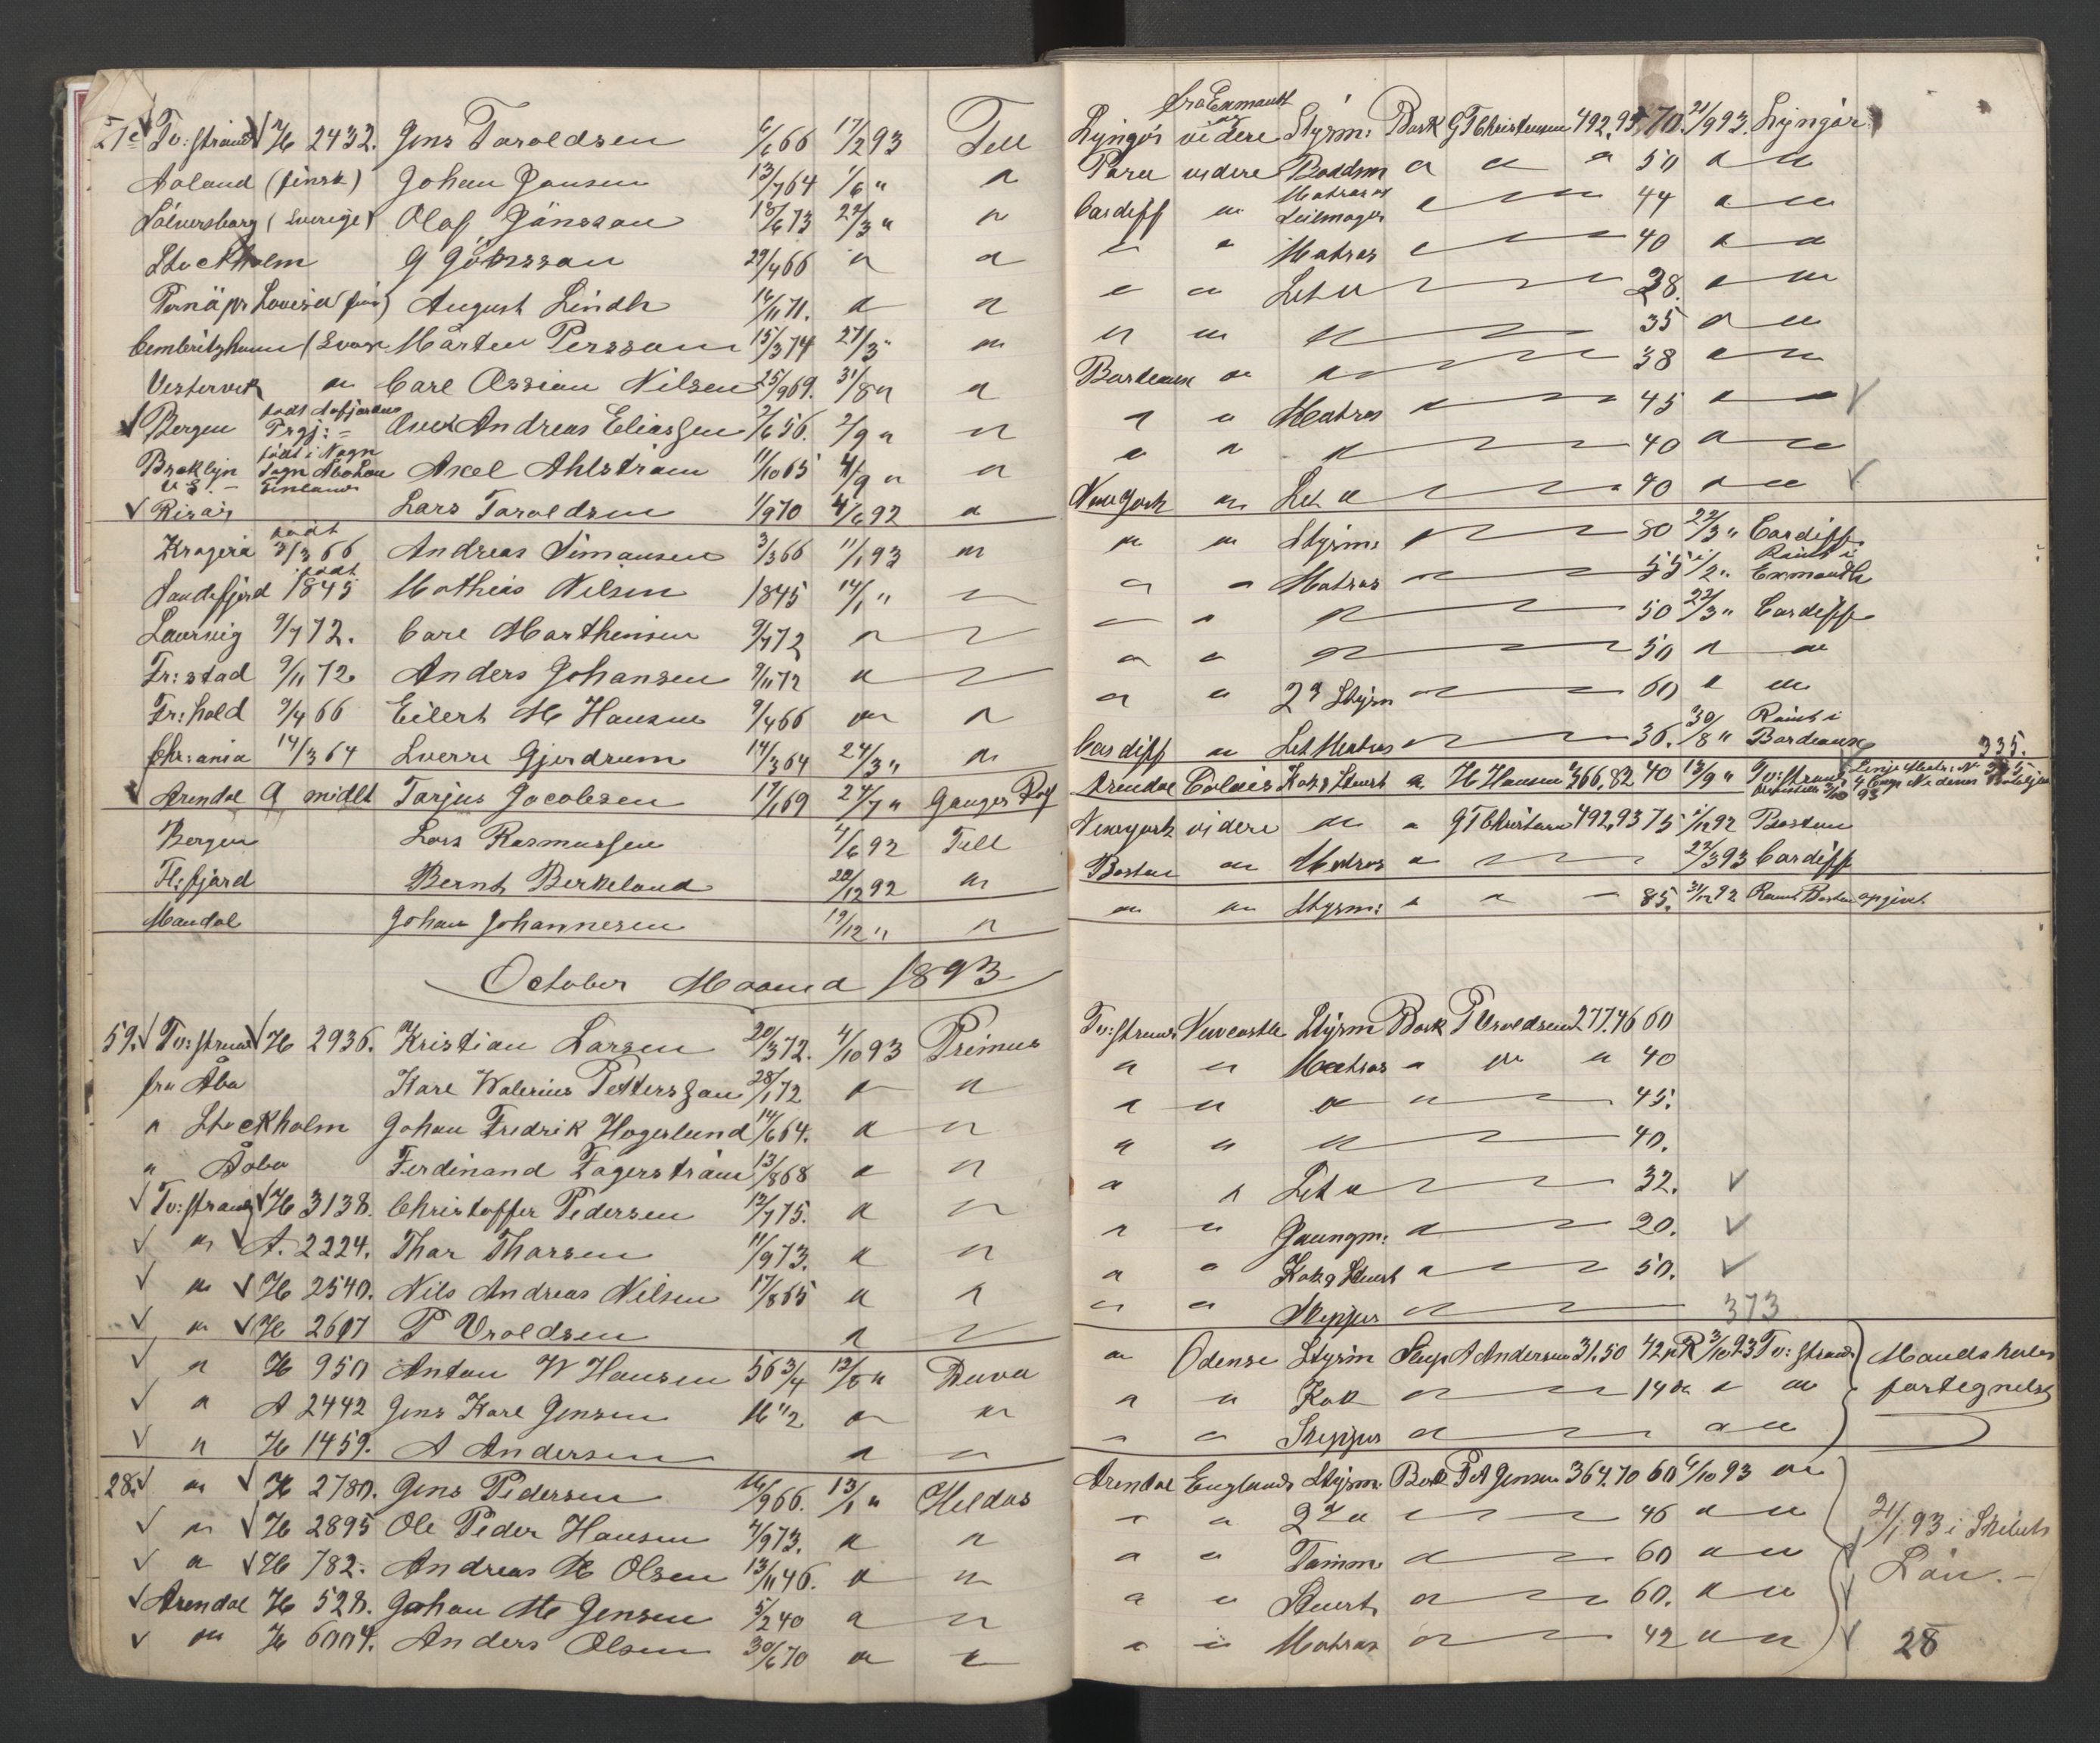 57c Tv:strand H 2432. Jens Taroldsen 6/6 66 17/2 93 Tell
Aaland (finsk) Johan Jansen 13/7 64 1/6 "
Sölversborg (Sverige) Olaf Jönsson 18/6 73 22/3 "
Stockholm G Görsson 29/4 66
Lovisa August Lindh 16/11 71.
Cembritzhamn (Sverr Mårten Persson 15/3 74 27/3 "
Vestervik Carl Ossian Nilsen 25/9 69. 31/8
Bergen Andreas Eliassen 2/6 56. 2/9
født i Nagu
Broklyn Sogn Åbo Län Axel Ahlström 11/10 65 4/9
U.S. – Finland
Risör Lars Taroldsen 1/9 70 4/6 92
født
Kragerø 3/3 66 Andreas Simonsen 3/3 66 11/1 93
født
Sandefjord 1845 Mathias Nilsen 1845 14/1 "
Laurvig 9/7 72. Carl Marthinsen 9/7 72
Fr:stad 9/11 72 Anders Johansen 9/11 72
Fr:hald 9/4 66 Eilert M Hansen 9/4 66
Chr:ania 14/3 64 Sverre Gjerdrum 14/3 64 24/3 "
Arendal A midlt Tarjus Jacobsen 17/1 69 24/7 " Ganger Rolf
Bergen Lars Rasmussen 4/6 92 Tell
Fl:fjord Bernt Berkeland 20/12 92
Mandal Johan Johannesen 19/12 "
October Maaned 1893
59. Tv:strand H 2936. Kristian Larsen 20/3 72. 4/10 93 Primus
fra Åbo Karl Walerius Pettersson 28/1 72
" Stockholm Johan Fredrik Hogerlund 14/6 64.
" Åbo Ferdinand Fagerström 13/8 68
Tv:strand H 3138. Christoffer Pedersen 12/7 75.
" A. 2224. Thor Thorsen 11/9 73.
" H 2540. Nils Andreas Nilsen 17/8 65
" H 2697 P Vroldsen
" H 950 Anton W Hansen 56 3/4 Duva
" A 2442 Jens Karl Jensen
" H 1459. A Andersen
28. " H 2780. Jens Pedersen 16/9 66. 13/1 " Heldos
" H 2895 Ole Peder Hansen 4/9 73.
" H 782. Andreas Olsen 13/11 46.
Arendal H 528. Johan M Jensen 5/2 40
" H 6004. Anders Olsen 30/6 70
fra Exmouth
Lyngør videre Styrm: Bark G T Christensen 492,93 70. 21/9 93. Lyngør
Para videre Baadsm " " " 50 " "
Matros og
Cardiff " Seilmager " 44 " "
" " Matros " 40 " "
" " Let " 38. " "
" " " 35 " "
Bordeaux " " 38 " "
" " Matros " 45 " "
" " " 40 " "
New York " Let " 40 " "
" " Styrm: " 80 22/3 " Cardiff
" " Matros " 55 1/2 " Rømt i Exmouth
" " " 50 22/3 " Cardiff
" " " 50 " "
" " 2d Styrm " 60 " "
Cardiff " Let Matros " 36. 30/8 " Rømt i Bordeaux 335.
Arendal Calais Kok & Stuert " H Hansen 366,82 40 13/9 " Tv:strand
Newyork videre " " G T Christens 492,93 75 1/12 92 Boston
Boston " Matros " 22/3 93 Cardiff
" " Styrm: " " – 85. 31/12 92 Rømt Boston opgivet
Tv:strand Newcastle Styrm Bark P Vroldsen 277.46 60
" " Matros " " " 40
" " " " 45.
" " " 40.
" " Let " 32.
" " Jungm: " 20.
" " Kok & Stuert " 50.
" " Skipper " 373
" Odense Styrm Slup A Andersen 31.50 42 pR 3/10 93 Tv:strand Mandskabs
" " Kok " 14 " " fortegnelse
" " Skipper " " "
Arendal England Styrm. Bark P A Jensen 364.70 60 6/10 93 "
" " 2d " 46 " " 21/1 93 i Skibets
" " Tømm " 60 " " Lön. –
" " Stuert " 60. " "
" " Matros " 42 " " 28